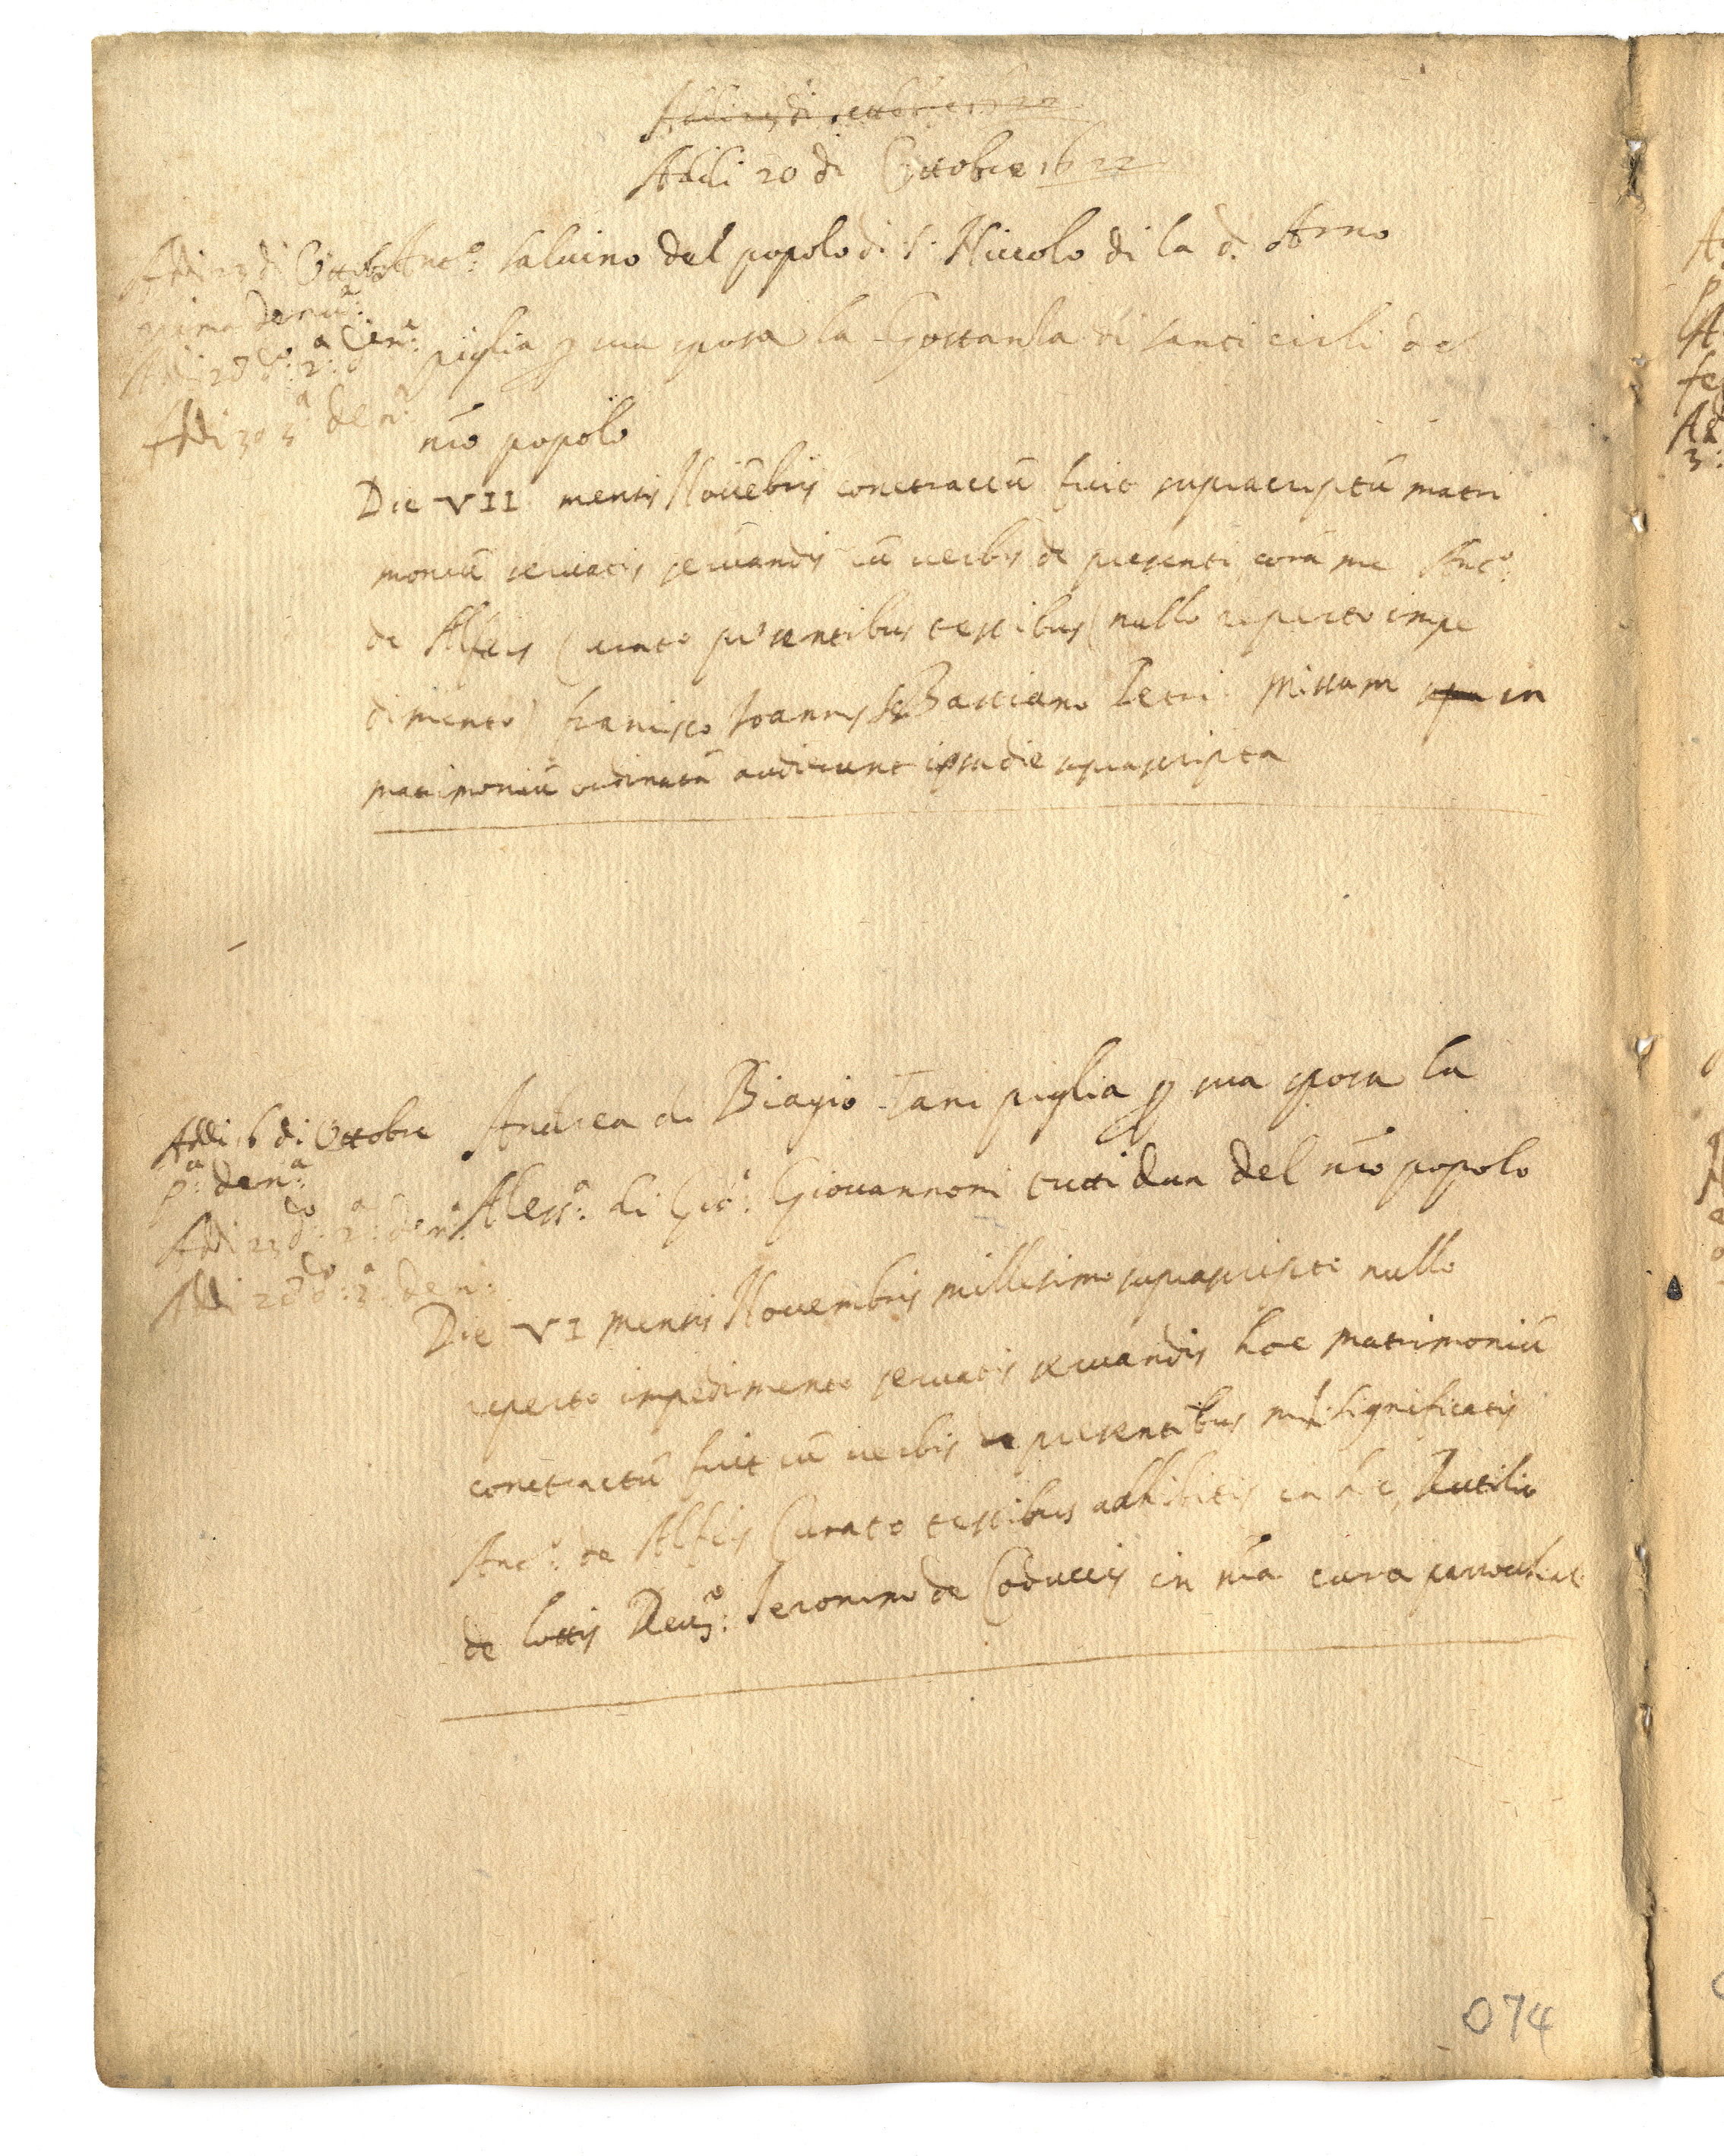 Addi 23 di settobre 1622
Addi 20 di Ottobre 1622
Addi 23 di Ottobre
prima denũ.ª
Addi 28 d.º 2.ª den.ª
Addi 30 3.ª den.ª
Ant.º: saluino del popolo di S. Niccolo di la d. Arno
piglia p sua sposa la Gostanza di santi cioli del
nrõ popolo
Die VII mensis Nouẽbris conctractũ fuit supra scriptũ matri
moniũ seruatis seruandis cũ uerbis de presenti corã me Ant.º:
de Alfeis Curato presentibus testibus (nullo reperto impe
dimento) francisco Joannis & Bastiano Petri Missam in
matrimoniũ ordinatã audierunt ipsa die suprascripta
Addi 16 di Ottobre
p.ª: den.ª
Addi 23 d.º: 2.ª: den.ª
Addi 28 d.º: 3.ª den.ª
Andrea di Biagio Tani piglia p sua sposa la
Aless.ª: di Gio: Giouannoni tutti dua del nrõ popolo
Die VI mensis Nouembris millesimo suprascripto nullo
reperto impedimento seruatis seruandis hoc matrimoniũ
conctractũ fuit cũ uerbis presentibus significatis
Ant.º: de Alfeis Curato testibus adhibitis Rutilio
de lottis Reu.º: Ieronimo de Coduccis in nrã cura parrochiale
074